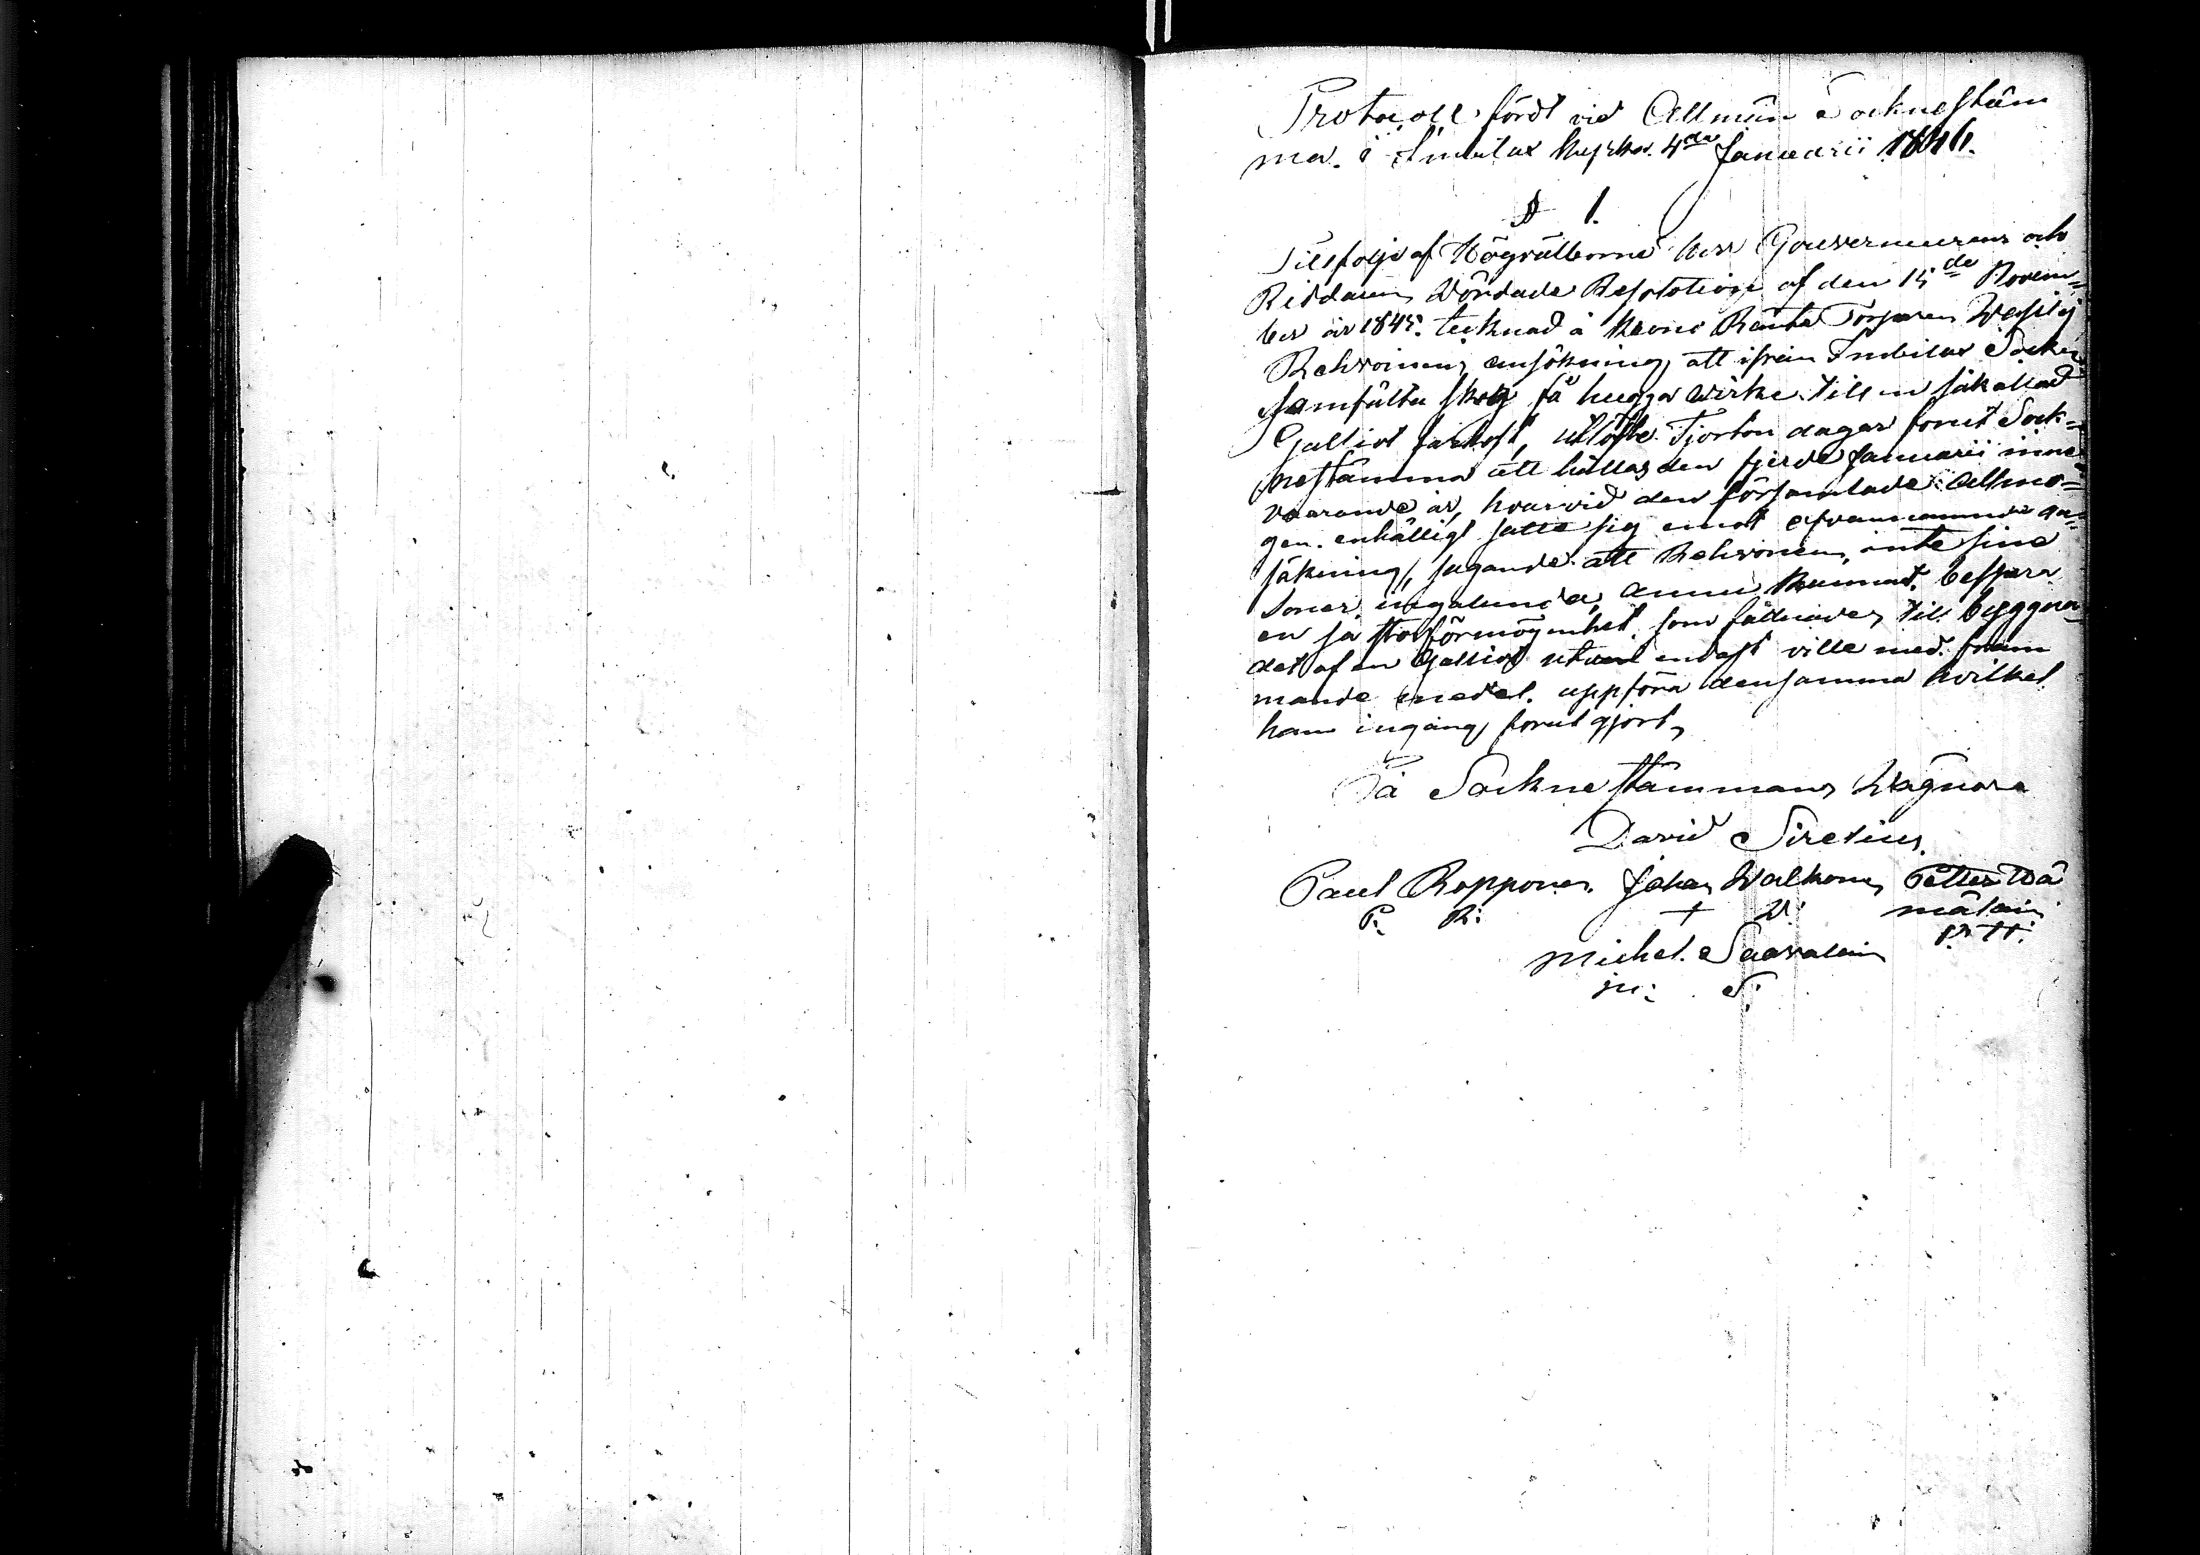 Protocoll fördt vid Allmän Socknestäm
ma i Imbilax kyrka 4de Januarii 1846.
§ 1.
Tillfölje af Högvälborne Herr Gouverneurens och
Riddarens Wördade Resolotion af den 15de Novem=
ber år 1845. tecknad å Krono Ränte Torparen Wasilij
Rehvoinens ansökning, att ifrån Imbilax Socken
samfälta skog få hugga wirke till en såkallad
Galliot farkost, utlöste Tjorton dagar förut Sock=
nestämma att hållas den fjerde Januarii inne=
varande år, hvarvid den församlade Allmo=
gen enhälligt satte sig emot ofvannamnde an=
sökning, sägande att Rehvoinen, inte sine
soner ingalunda, ännu kunnat bespara
en så stor förmögenhet, som fältnades till byggna=
det af en Galliot utan endast ville med främ
mande medel uppföra densamma hvilket
han ingång förut gjort,
På Socknestämmans Wägnara
David Siretius.
Paul Ropponen Johan Walkonen Petter Wä
P. R. + W. mäläin
P. W.
Michel Saavalain
M. S.